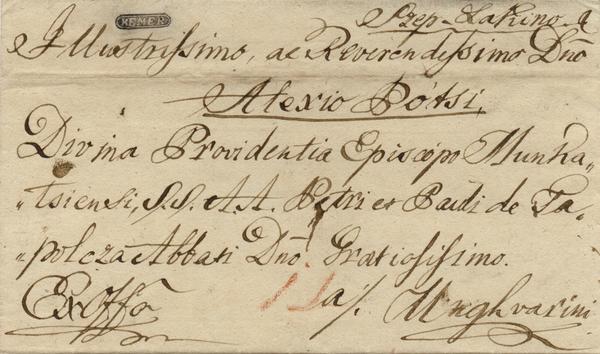 KEMER
Szep-Lakino a
Illustrissimo, ac Reverendissimo Dnō
Alexio Pótsi,
Divina Providentia Episcopo Munka„
„tsiensi, S.S. A.A. Petri et Pauli de Ta„
„polcza Abbati Dnō Gratiosissimo.
Ex Offō a/. Unghvarini